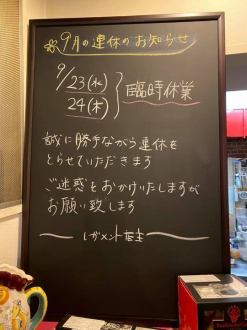 9月の連休のお知らせ
9/23(水)
24(木)
臨時休業
誠に勝手ながら連休を
とらせていただきます
ご迷惑をおかけいたしますが
お願い致します
レガメント店主